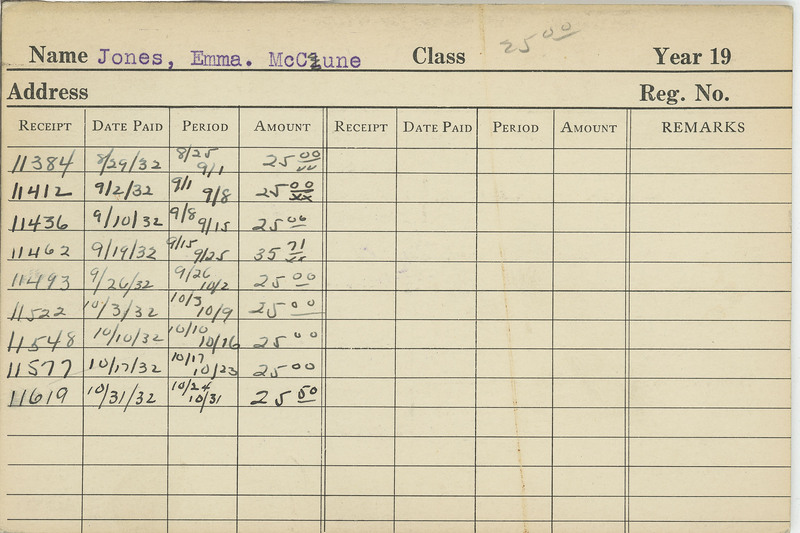 25 00
Name Jones, Emma. McCune Class Year 19
Address Reg. No.
RECEIPT DATE PAID PERIOD AMOUNT RECEIPT DATE PAID PERIOD AMOUNT REMARKS
11384 8/29/32 8/25 9/1 25 00/xx
11412 9/2/32 9/1 9/8 25 00/xx
11436 9/10/32 9/8 9/15 25 00
11462 9/19/32 9/15 9/25 35 71/xx
11493 9/26/32 9/26 10/2 25 00
11522 10/3/32 10/3 10/9 25 00
11548 10/10/32 10/10 10/16 25 00
11577 10/17/32 10/17 10/23 25 00
11619 10/31/32 10/24 10/31 25 50